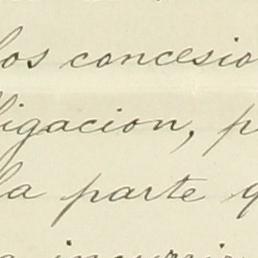 los concesio
ligacion, p
la parte q